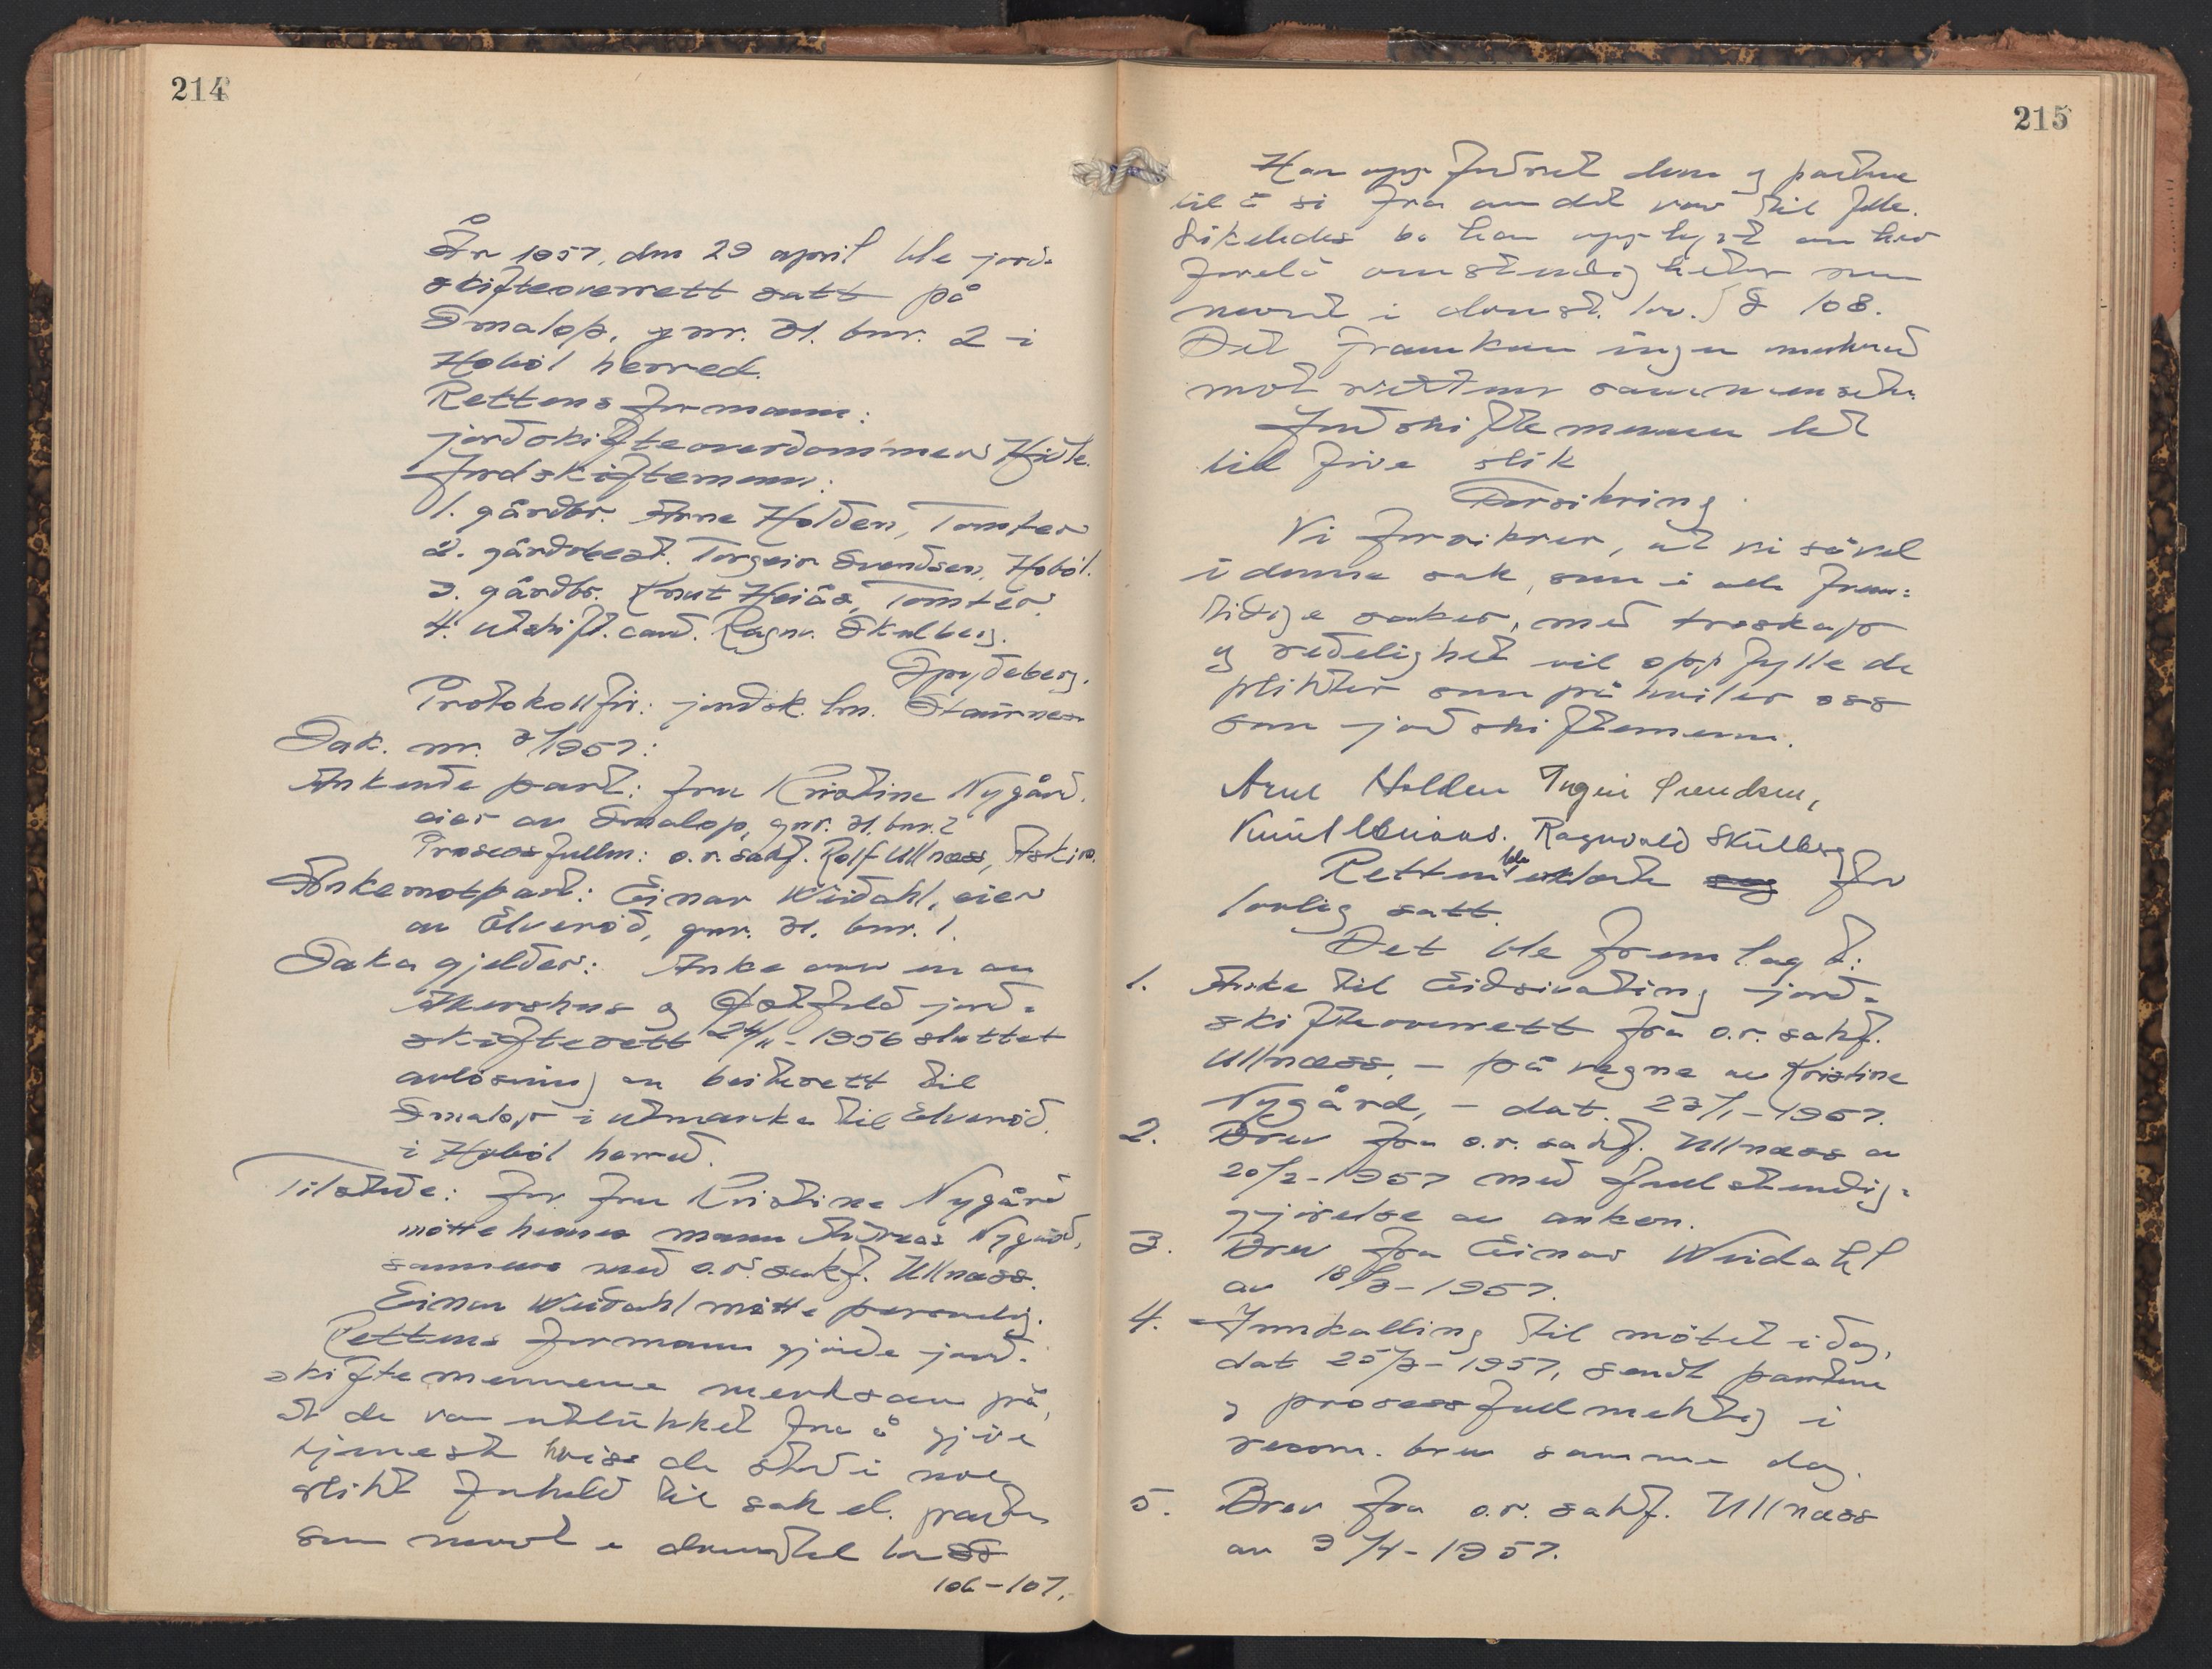 214
År 1957, den 29 april ble jord-
skifteoverrett satt på
Smalop, gnr. 31. bnr. 2 i
Hobøl herred.
Rettens formann:
jordskifteoverdommer
Jordskiftemenn:
1. gårdbr. Arne Holden, Tomter
2. gårdbest. Torgeir Svendsen, Hobøl.
3. gårdbr. Knut Heiås, Tomter.
4. utskift. cand. Ragnv. Skulberg.
Spydeberg.
Protokollfør: jordsk. km. Staurnes
Sak. nr. 3/1957:
Ankende part: fru Kristine Nygård.
eier av Smalop, gnr. 31. bnr. 2
Prosessfullm: o.r. sakf. Rolf Ullnæss, Askim.
Ankemotpart: Einar Wiidahl, eier
av Elverød, gnr. 31. bnr. 1.
Saka gjelder: Anke over en av
Akershus og Østfold jord-
skifterett 24/11-1956 sluttet
avløsning av beiterett til
Smalop i utmarka til Elverød.
i Hobøl herred.
Tilstede: for fru Kristine Nygård
møtte hennes mann Andreas Nygård,
sammen med o.r. sakf. Ullnæss.
Einar Wiidahl møtte personlig.
Rettens formann gjorde jord-
skiftemennene merksam på,
at de var utelukket fra å gjøre
tjeneste hvis de stod i noe
slikt forhold til sak el. parter
som nevnt i domstol lov §§
106-107.
215
Han oppfordret dem og partene
til å si fra om det var tilfelle.
Likeledes ba han opplyst om her
forelå omstendigheter som
nevnt i domst. lov. § 108.
Det framkom ingen merknad
mot rettens sammensetn.
Jordskiftemennene
til frive slik
Forsikring.
Vi forsikrer, at vi såvel
i denne sak, som i alle frem-
tidige saker, med troskap
og redelighet vil oppfylle de
plikter som påhviler oss
som jordskiftemenn.
Arne Holden Torgeir Svendsen,
Knut Heiaas. Ragnvald Skulberg
Retten ble erklært for
lovlig satt.
Det ble fremlagt:
1. Anke til Eidsivating jord-
skifteoverrett fra o.r. sakf.
Ullnæss, - på vegne av Kristine
Nygård, - dat. 23/1-1957.
2. Brev fra o.r. sakf. Ullnæss av
20/2-1957 med fullstendig-
gjørelse av anken.
3. Brev fra Einar Wiidahl
av 18/3-1957.
4. Innkalling til møtet idag,
dat 25/3-1957, sendt partene
og prosessfullmektig i
recom. brev samme dag.
5. Brev fra o.r. sakf. Ullnæss
av 9/4-1957.